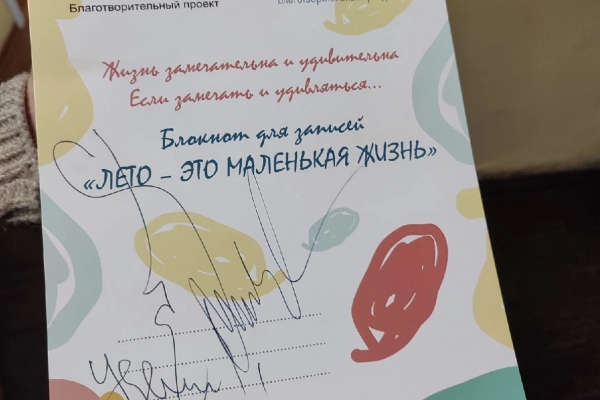 Благотворительный проект
Жизнь замечательна и удивительна
Если замечать и удивляться...
Блокнот для записей
«ЛЕТО – ЭТО МАЛЕНЬКАЯ ЖИЗНЬ»